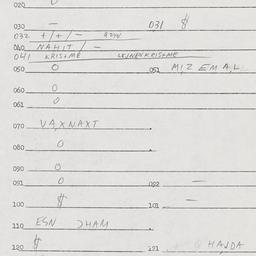 020 0
030 — 031 $
032 +/+/—
040 NAHIT / —
041 KRIS+ME
050 0 051 MIZEMAL
060 0
061 0
070 VAXNAXT
080 0
090 0
091 0 092 —
100 $ 101 —
110 ESN DHAM
120 $ 121 HAJDA